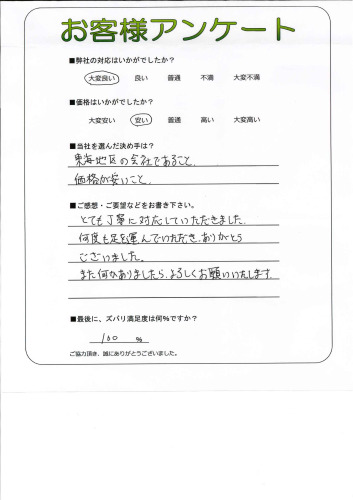 お客様アンケート
■弊社の対応はいかがでしたか?
大変良い 良い 普通 不満 大変不満
■価格はいかがでしたか?
大変安い 安い 普通 高い 大変高い
■当社を選んだ決め手は?
東海地区の会社であること.
価格が安いこと.
■ご感想・ご要望などをお書き下さい。
とても丁寧に対応していただきました.
何度も足を運んでいただき.ありがとう
ございました.
また何かありましたら.よろしくお願いいたします.
■最後に、ズバリ満足度は何%ですか?
100 %
ご協力頂き、誠にありがとうございました。